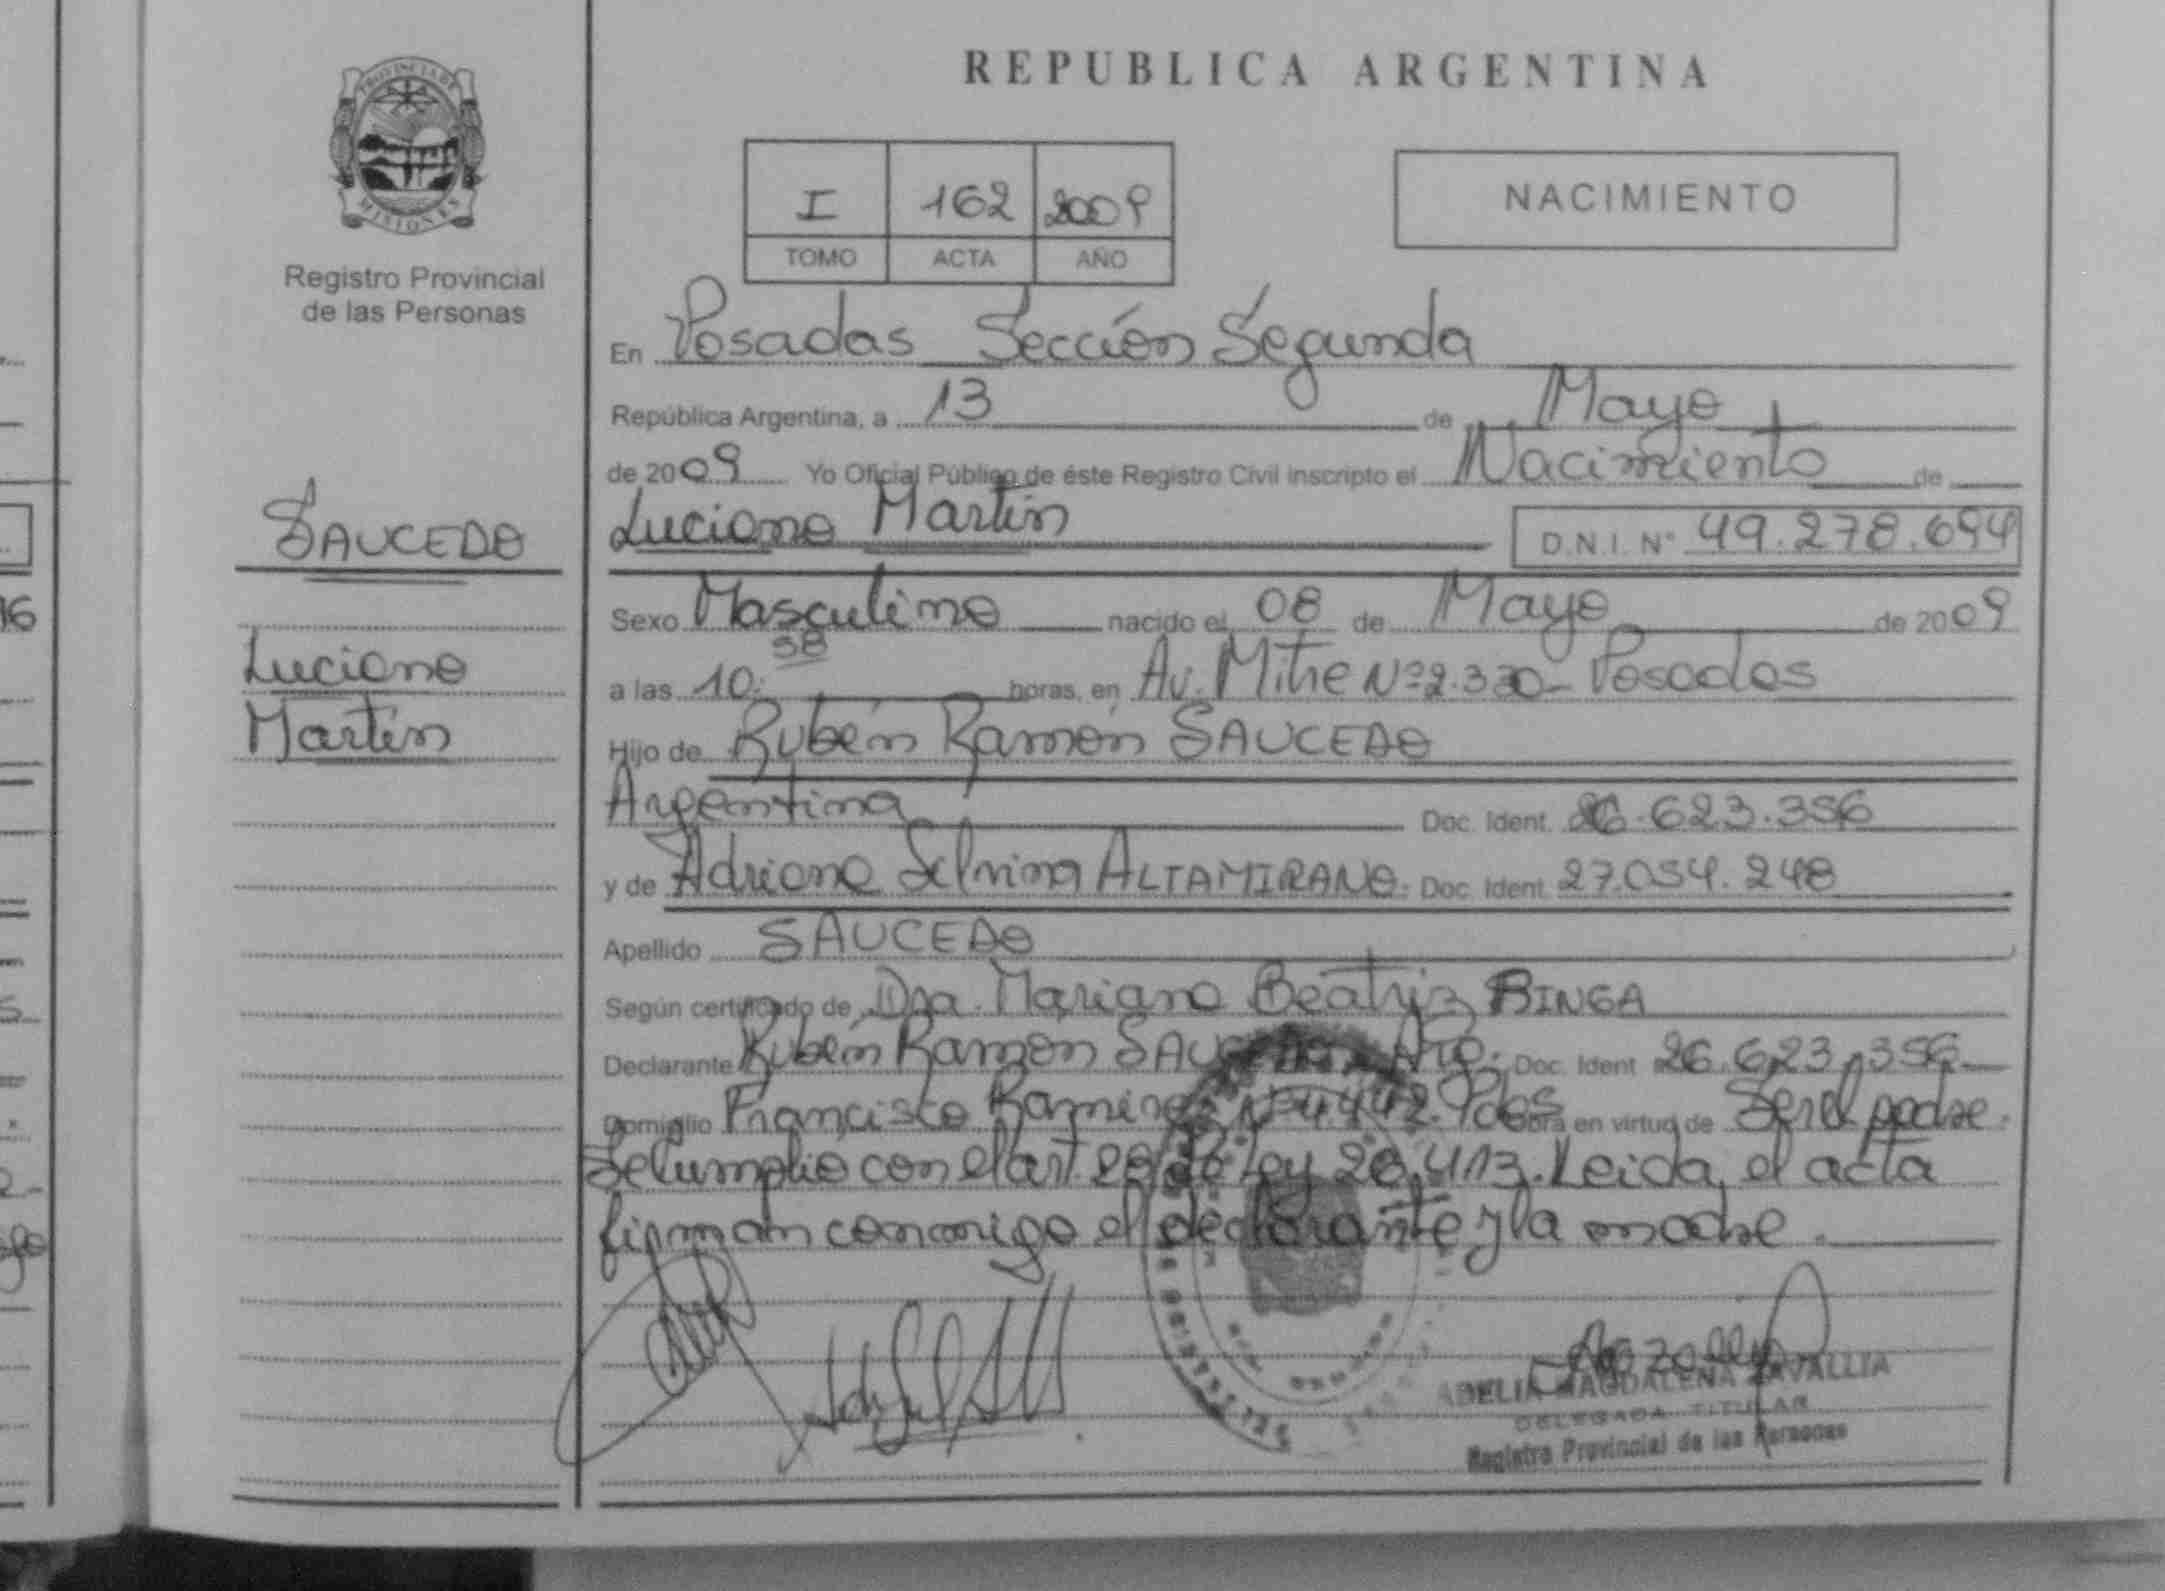 PROVINCIA DE
MISIONES
Registro Provincial
de las Personas
SAUCEDO
Luciano
Martín
REPUBLICA ARGENTINA
I 162 2009
TOMO ACTA AÑO
NACIMIENTO
En Posadas Sección Segunda
República Argentina, a 13 de Mayo
de 2009 Yo Oficial Público de éste Registro Civil inscripto el Nacimiento de
Luciano Martín D.N.I. Nº 49.278.694
Sexo Masculino nacido el 08 de Mayo de 2009
a las 10:58 horas, en Av. Mitre Nº 2.330 - Posadas
Hijo de Rubén Ramón SAUCEDO
Argentina Doc. Ident. 26.623.356
y de Adriana Silvina ALTAMIRANO. Doc. Ident. 27.054.248
Apellido SAUCEDO
Según certificado de Dra. Mariana Beatriz BINGA
Declarante Rubén Ramón SAUCEDO Arg. Doc. Ident 26.623.356
Domicilio Francisco Ramirez Nº 4.442. Pdas Obra en virtud de Ser el padre.
Se cumplió con el art. de Ley 26.413. Leida el acta
firman conmigo el declarante y la madre.
ADELIA MAGDALENA ZAVALLIA
DELEGADA TITULAR
Registro Provincial de las Personas